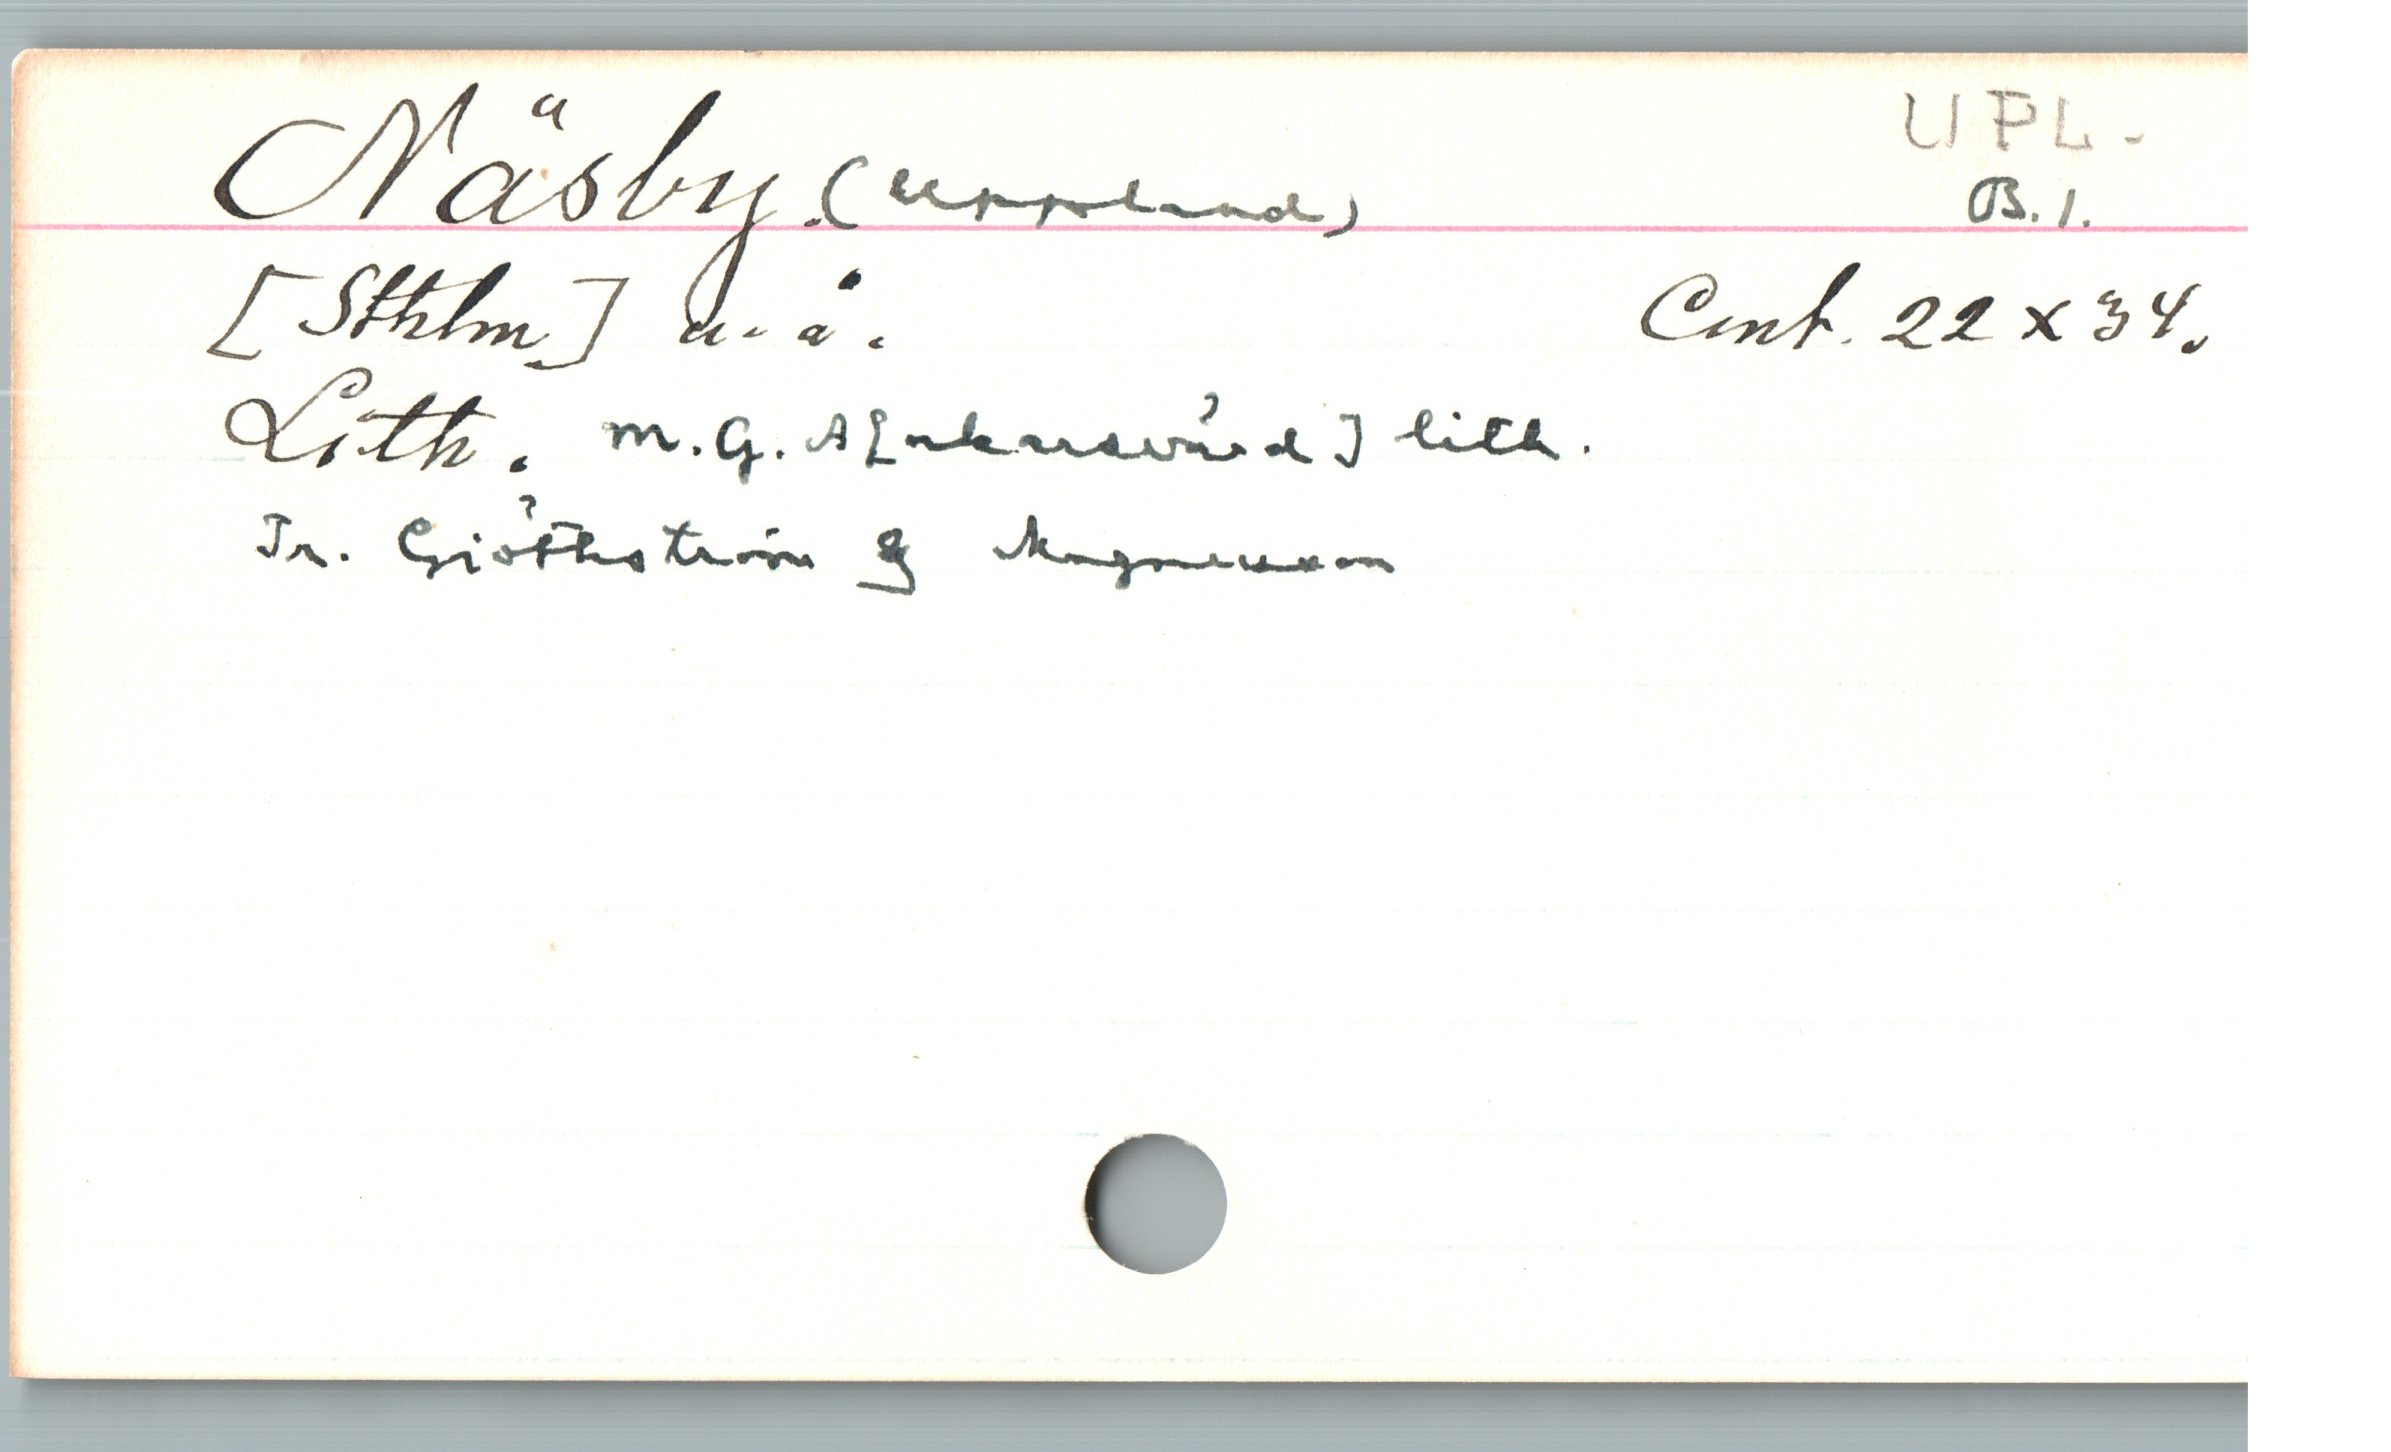 Näsby. (Uppland)
UPL.
B.1.
[Sthlm] u. å.
Cent. 22 x 34.
Lith. M. G. A[nkarsvärd] lith.
Tr. Gjöthström & Magnusson